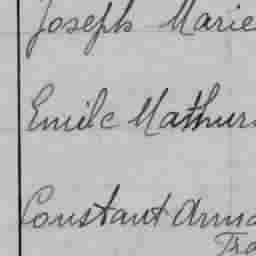 Joseph Marie
Emile Mathur
Constant Arma
Tra